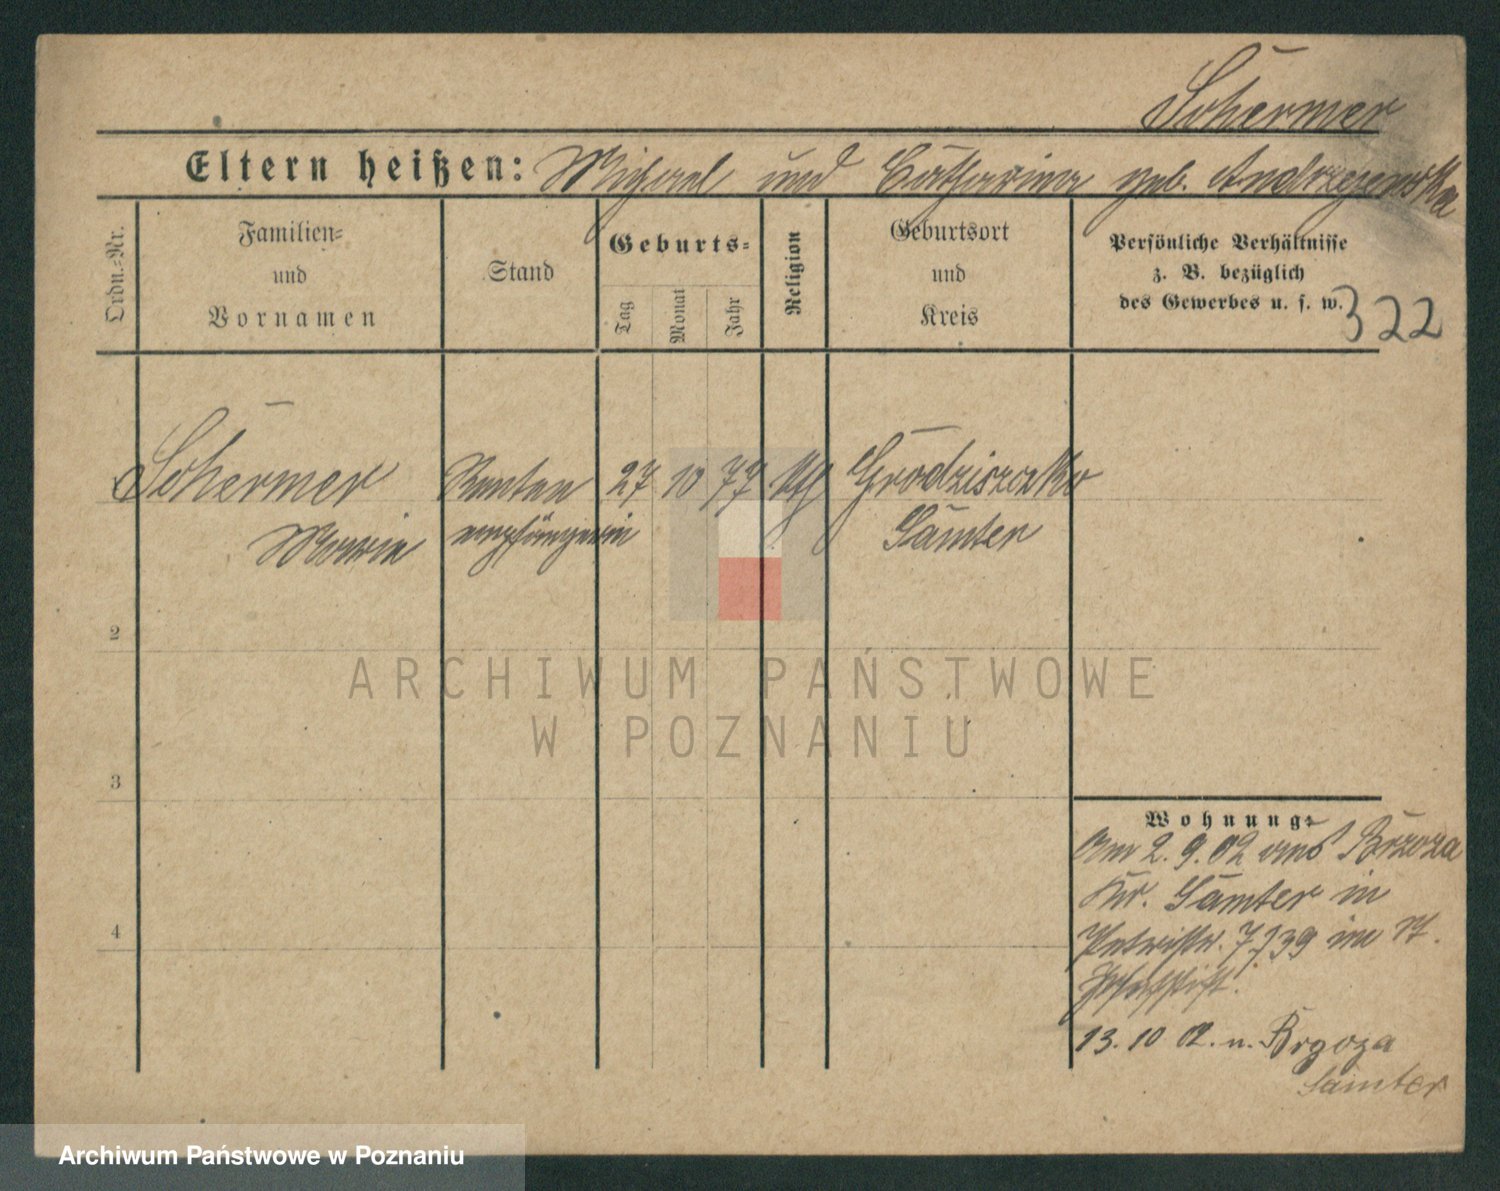 Schermer
Eltern heißen: Michael und Catharina geb. Andrzejewska
Ordn.-Nr.
Familien-
und
Vornamen
Stand
Geburts-
Tag
Monat
Jahr
Religion
Geburtsort
und
Kreis
Persönliche Verhältnisse
z. B. bezüglich
des Gewerbes u. s. w.
322
Schermer Renten 27 10 77 kth Grodziszczko
Marie empfängerin Samter
2
3
4
Wohnung:
Am 2.9.02 aus Brzoza
Kr. Samter in
Petristr. 7 39 im
13.10 02. n. Brzoza
Samter
ARCHIWUM PAŃSTWOWE
W POZNANIU
Archiwum Państwowe w Poznaniu